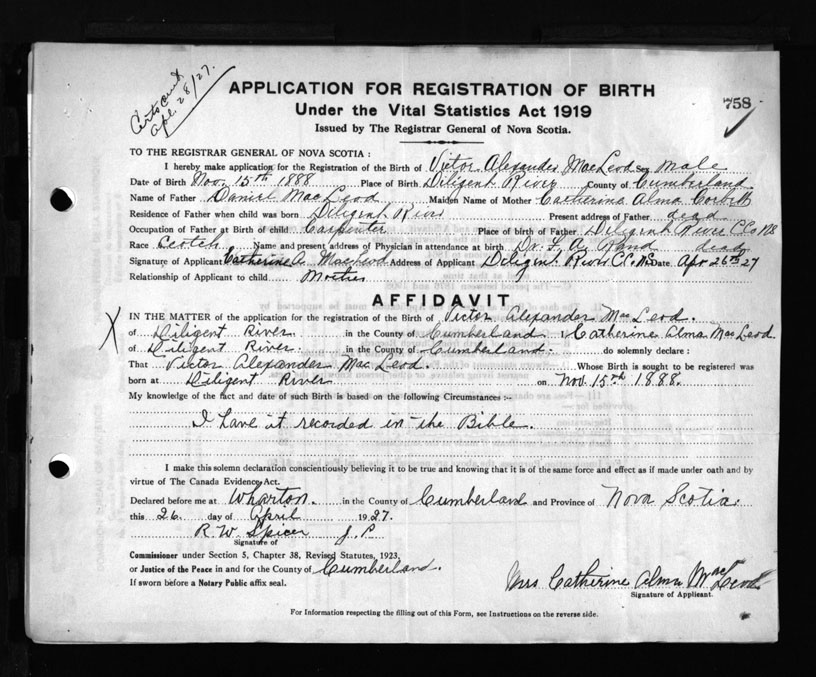 Certs sent
Apl. 28/27.
APPLICATION FOR REGISTRATION OF BIRTH
758
Under the Vital Statistics Act 1919
Issued by The Registrar General of Nova Scotia.
TO THE REGISTRAR GENERAL OF NOVA SCOTIA :
I hereby make application for the Registration of the Birth of Victor Alexander MacLeod Sex Male
Date of Birth Nov. 15th 1888 Place of Birth Diligent River County of Cumberland
Name of Father Daniel MacLeod Maiden Name of Mother Catherine Alma Corbett
Residence of Father when child was born Diligent River Present address of Father dead
Occupation of Father at Birth of child Carpenter Place of birth of Father Diligent River C. Co NS
Race Scotch Name and present address of Physician in attendance at birth Dr. F. A. Rand dead
Signature of Applicant Catherine A. MacLeod Address of Applicant Diligent River C. Co. N.S. Date Apr 26th 27
Relationship of Applicant to child Mother
AFFIDAVIT
X IN THE MATTER of the application for the registration of the Birth of Victor Alexander MacLeod.
of Diligent River in the County of Cumberland I Catherine Alma MacLeod
of Diligent River in the County of Cumberland. do solemnly declare :
That Victor Alexander MacLeod. Whose Birth is sought to be registered was
born at Diligent River on Nov. 15th 1888.
My knowledge of the fact and date of such Birth is based on the following Circumstances :-
I have it recorded in the Bible.
I make this solemn declaration conscientiously believing it to be true and knowing that it is of the same force and effect as if made under oath and by
virtue of The Canada Evidence Act.
Declared before me at Wharton. in the County of Cumberland and Province of Nova Scotia.
this 26 day of April 1927.
R. W. Spicer J. P.
Signature of
Commissioner under Section 5, Chapter 38, Revised Statutes, 1923,
or Justice of the Peace in and for the County of Cumberland.
If sworn before a Notary Public affix seal.
Mrs Catherine Alma MacLeod
Signature of Applicant.
For Information respecting the filling out of this Form, see Instructions on the reverse side.